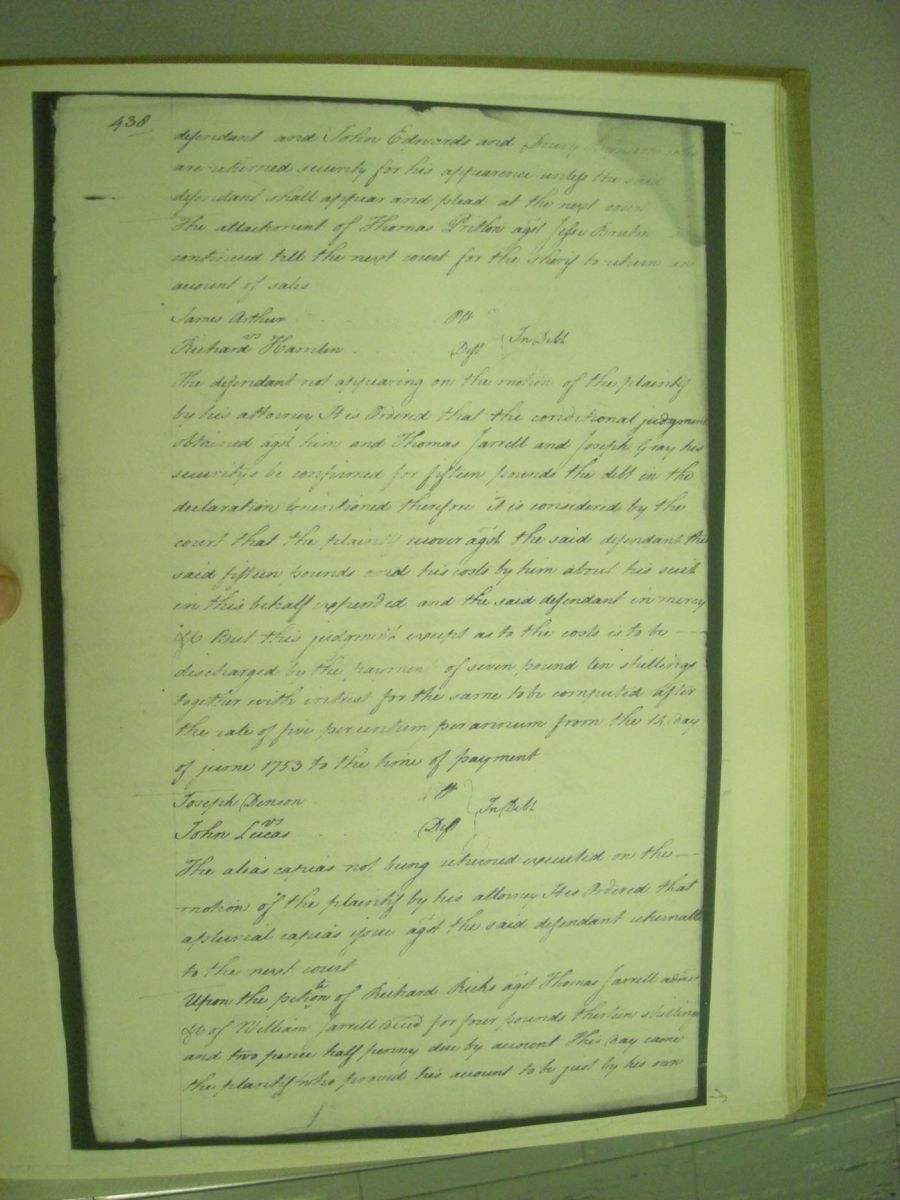 438
defendant and John Edwards and Drury
are returned security for his appearence unless the said
defendant shall appear and plead at the next court
The attachment of Thomas Pretlow agst Jesse Bruton
continued till the next court for the Sherif to return an
account of sales
James Arthur Plt
vs In Debt
Richard Hamlin Deft
The defendant not appearing on the motion of the plaintif
by his attorney It is Ordered that the conditional judgment
obtained agst him and Thomas Jarrell and Joseph Gray his
securitys be confirmed for fifteen pounds the debt in the
declaration mentioned therefore it is considered by the
court that the plaintif recover agst the said defendant the
said fifteen pounds and his costs by him about his suit
in this behalf expended and the said defendant in mercy
&c But this judgment except as to the costs is to be
discharged by the payment of seven pound ten shillings
together with intrest for the same to be computed after
the rate of five per centum per annum from the 14 day
of june 1753 to the time of payment
Joseph Denson Plt
vs In Debt
John Lucas Deft
The alias capias not being returned executed on the
motion of the plaintif by his attorney It is Ordered that
a plurial capias issue agst the said defendant returnable
to the next court
Upon the petition of Richard Ricks agst Thomas Jarrell admr
&c of William Jarrell decd for four pounds thirteen shillings
and two pence half penny due by account This day came
the plantif who proved his account to be just by his own